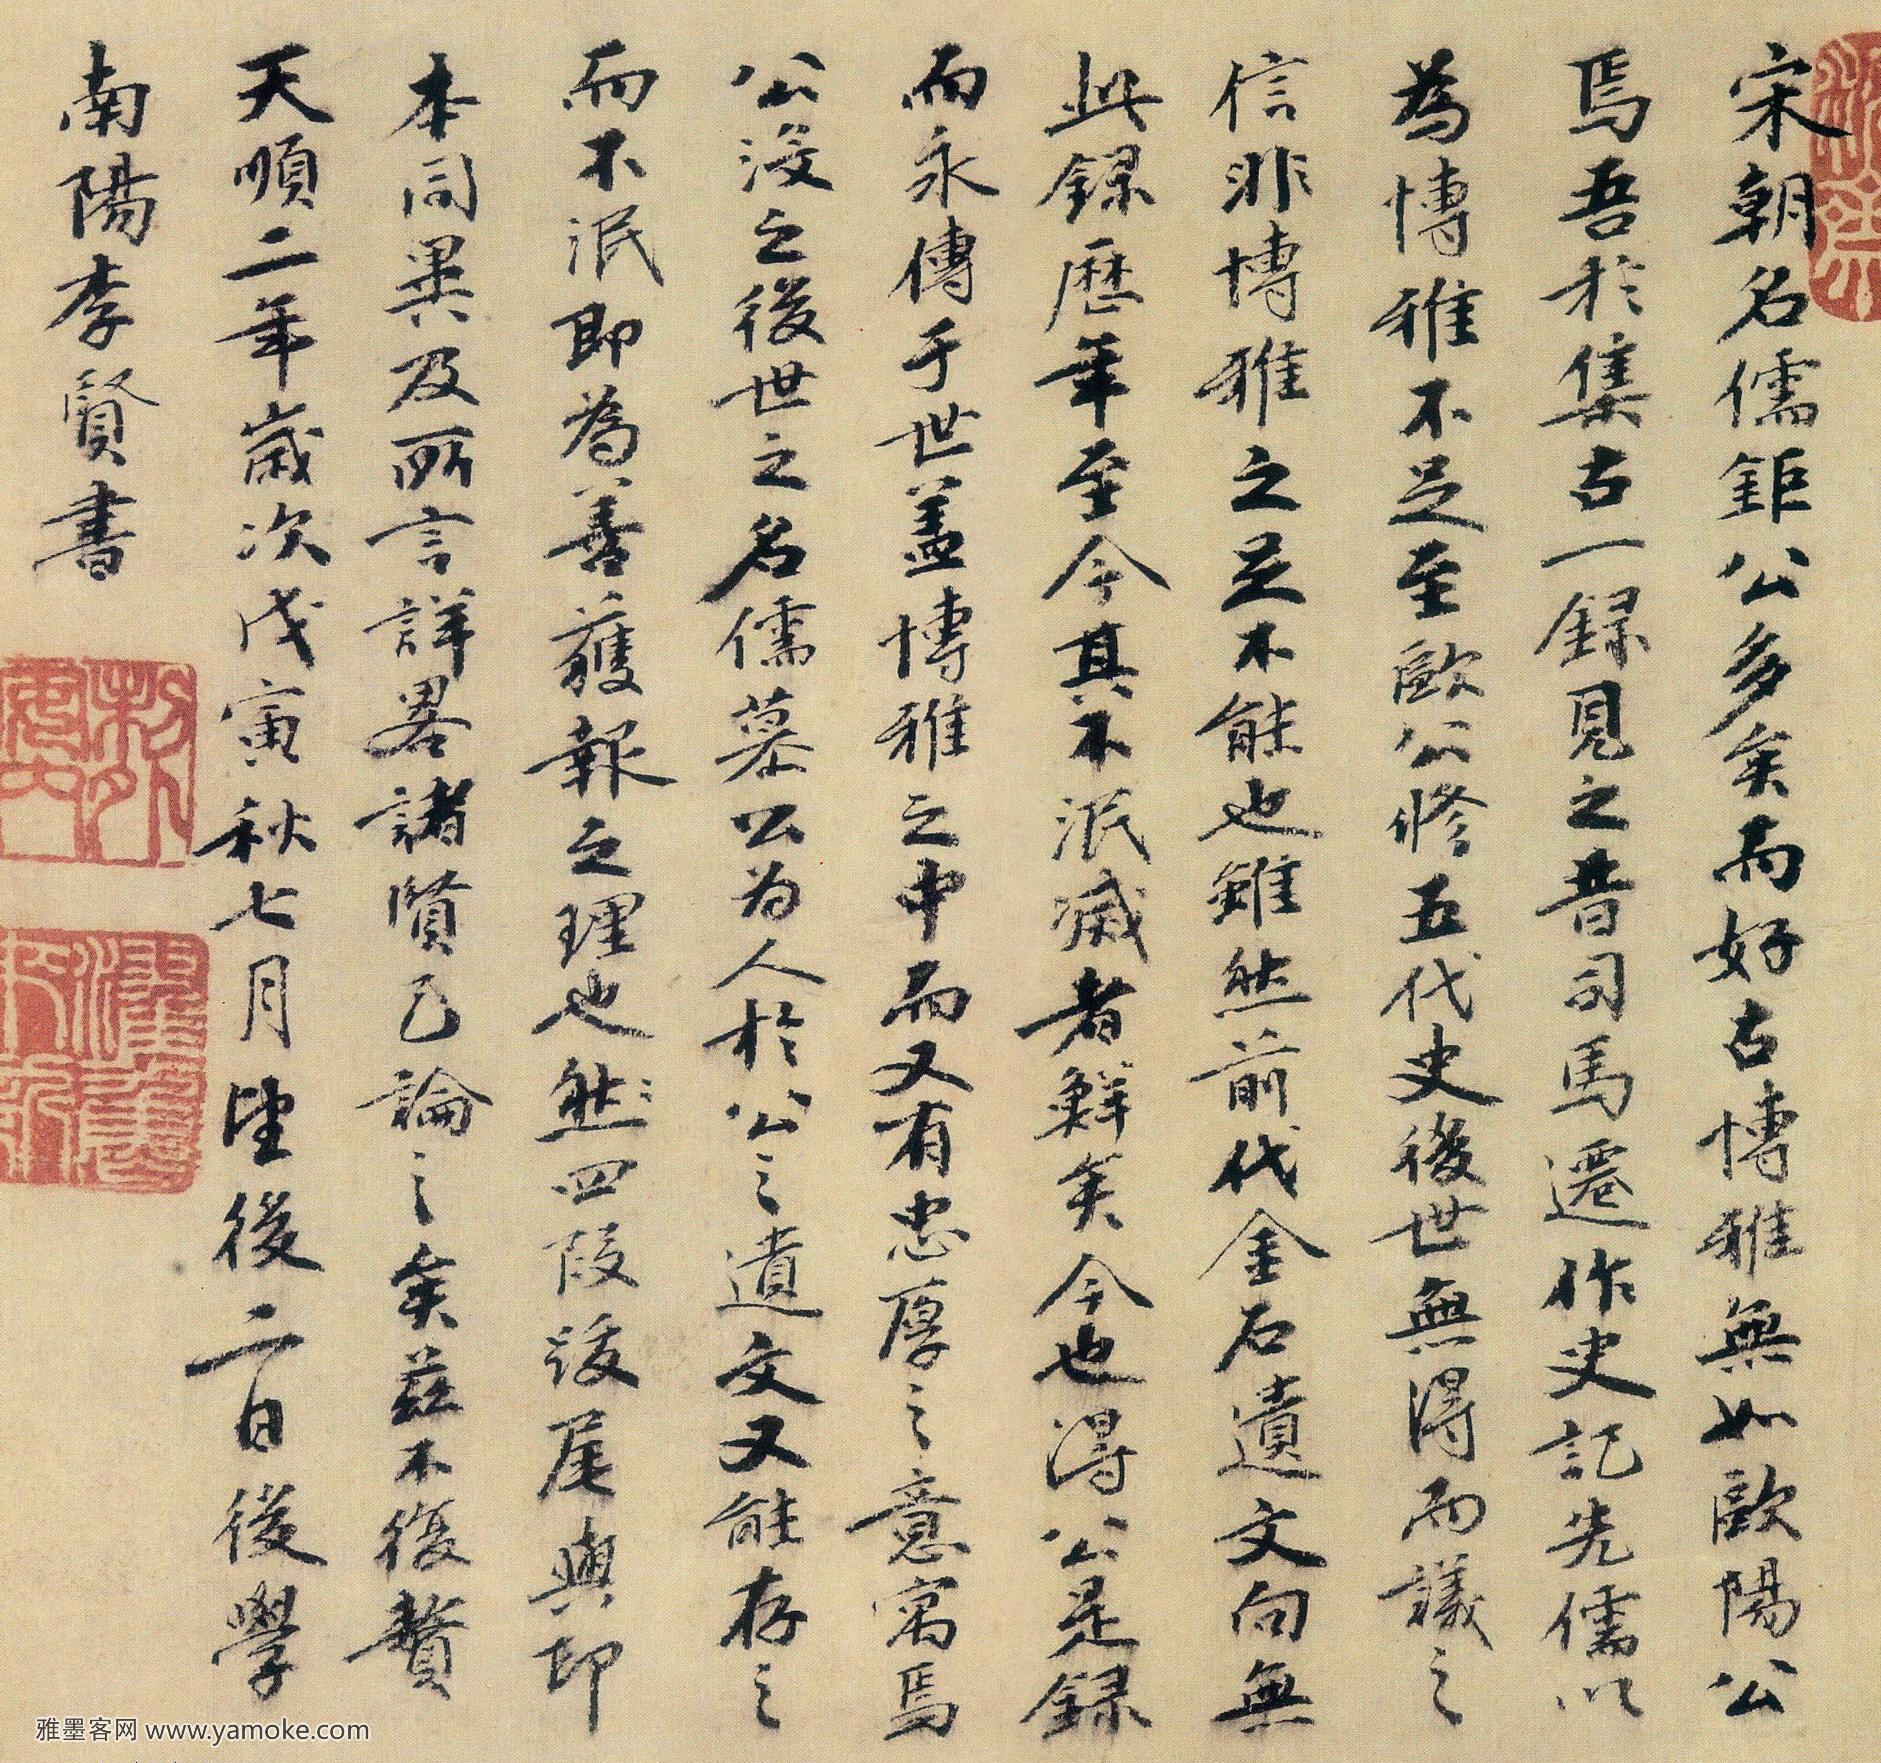 宋朝名儒鉅公多矣而好古博雅無如歐陽公
焉吾於集古一録見之昔司馬遷作史記先儒以
為博雅不足至歐公修五代史後世無得而議之
信非博雅之足不能也雖然前代金石遺文向無
此録歷年至今其不泯滅者鮮矣今也得公是録
而永傳于世盖博雅之中而又有忠厚之意寓焉
公没之後世之名儒慕公为人於公之遺文又能存之
而不泯即為善獲報之理也然四段跋尾與印
本同異及所言詳畧諸賢已論之矣茲不復贅
天順二年歲次戊寅秋七月望後二日後學
南陽李賢書
雅墨客网 www.yamoke.com